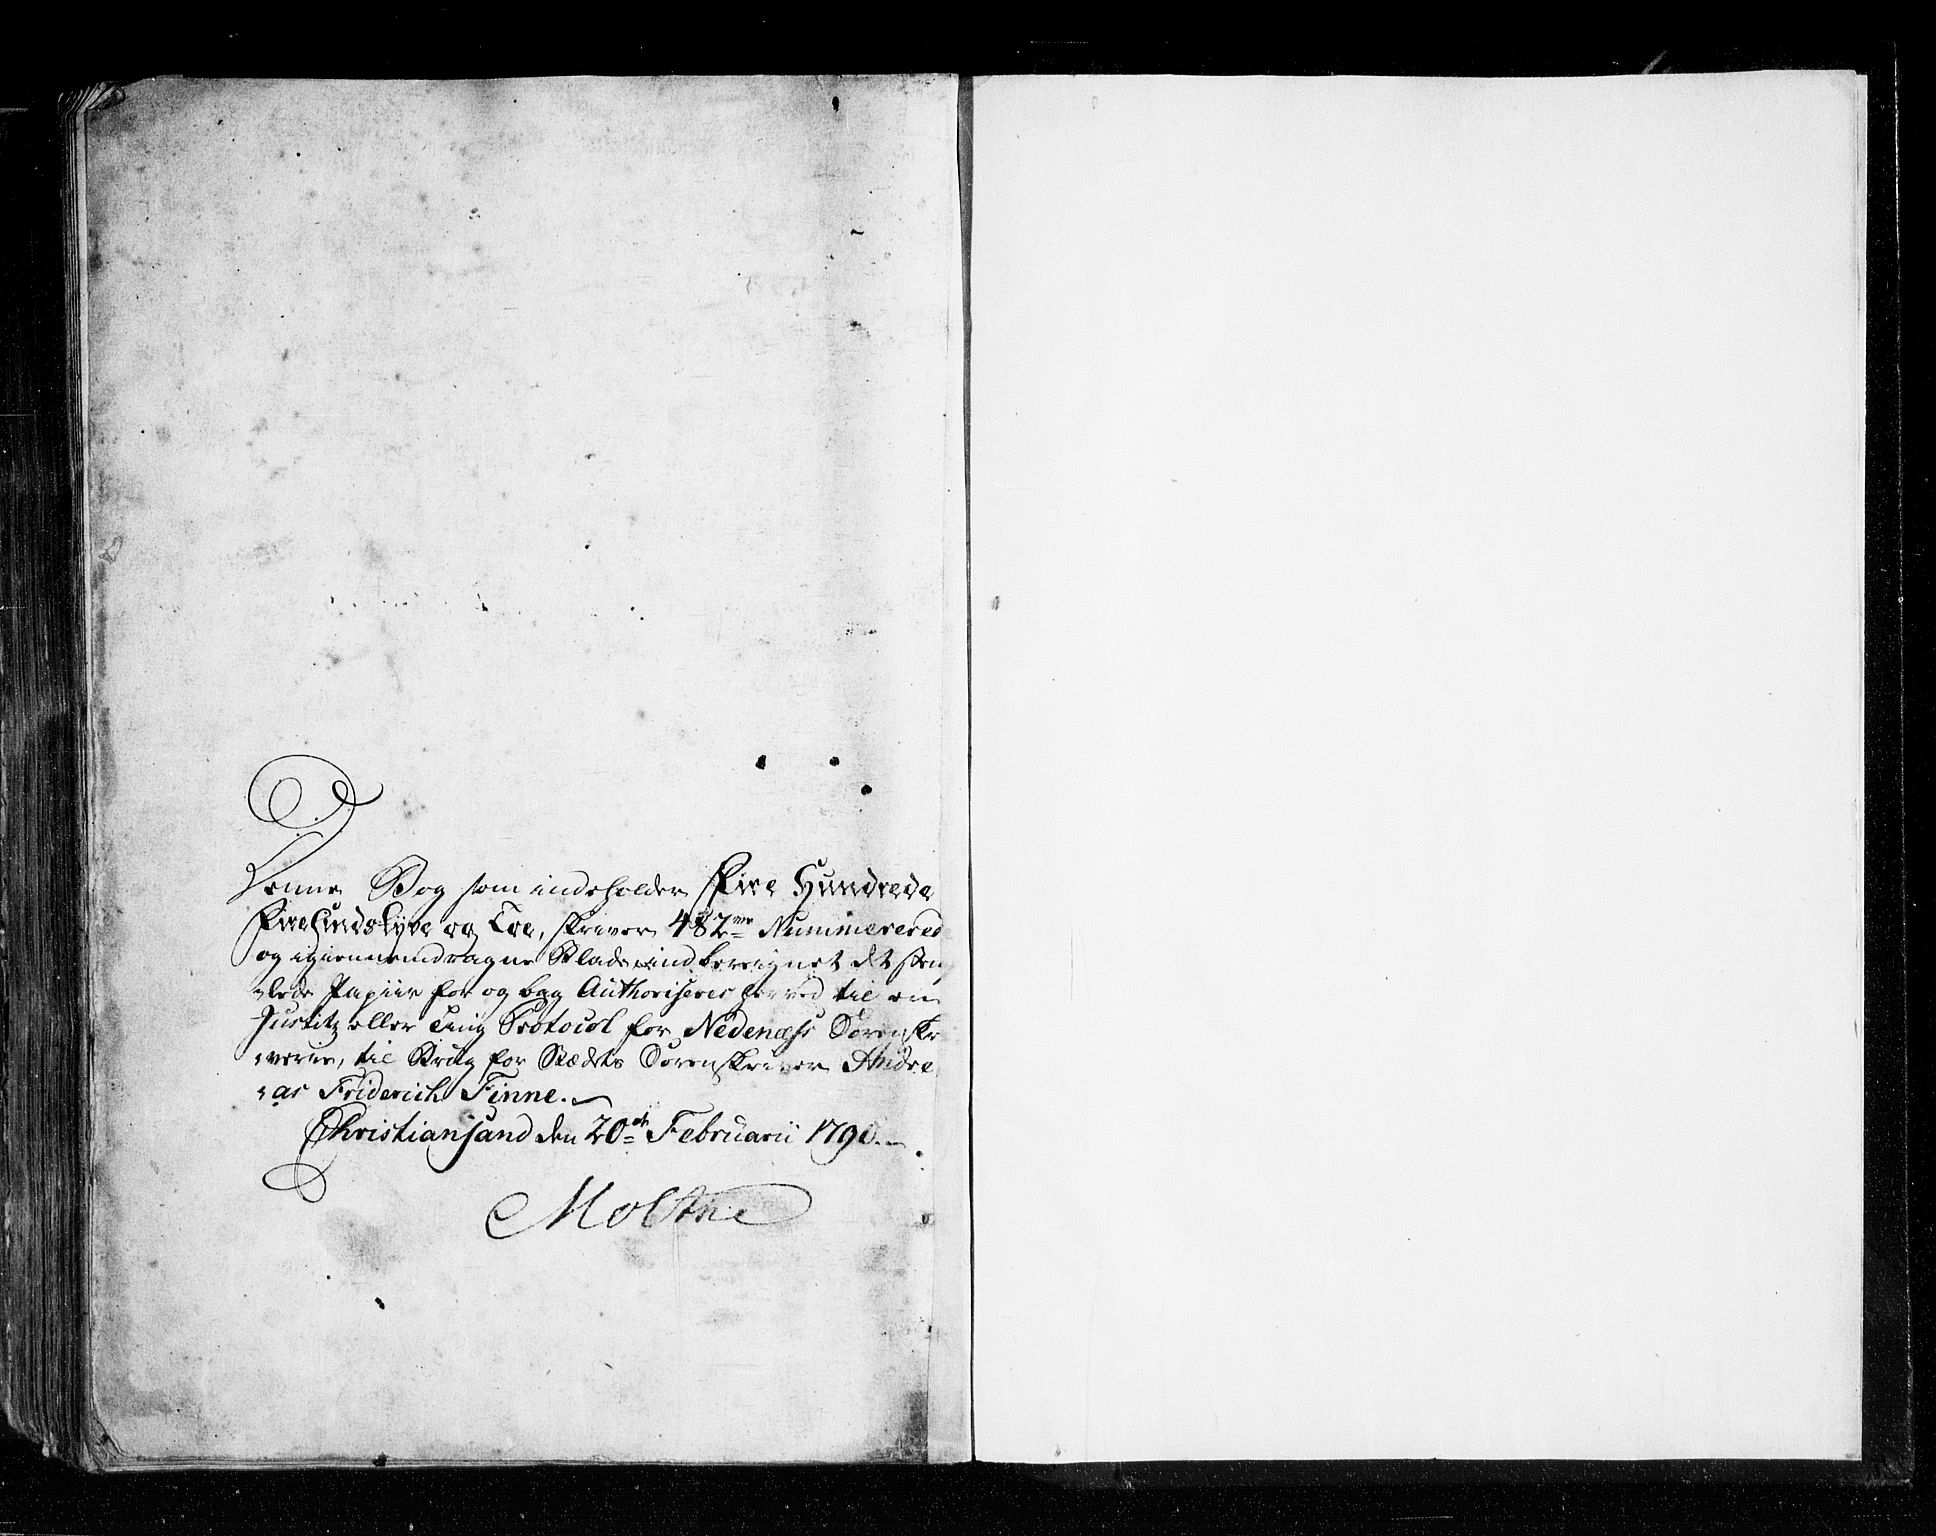 Denne Bog som indeholder Fire Hundrede
Firesindstyve og Toe, skriver 482 ve Nummererede
og igiennemdragne Blade, indberegnet det stem
-lede Papiir for og bag Authoriseres herved til en
Justitz eller Ting Protocol for Nedenæss Sorenskr
-verie, til Brug for Stædets Sorenskriver Andre
-as Friderich Finne.
Christiansand den 20de Februarii 1790.
Moltke